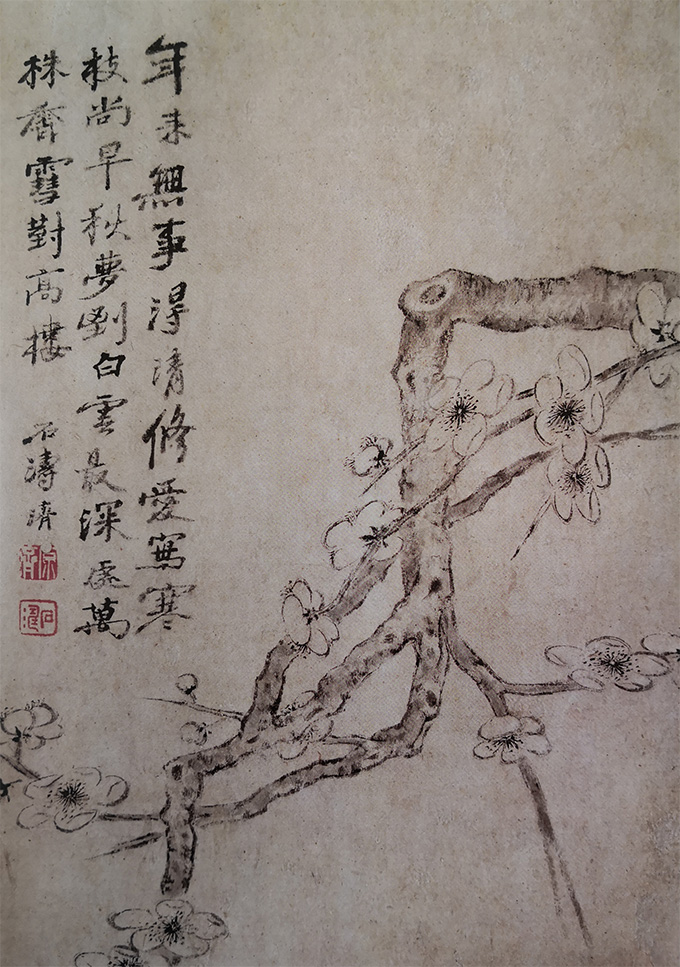 年來無事得清修愛寫寒
枝尚早秋夢到白雲最深處萬
株香雪對高樓
石濤濟
原濟
石濤